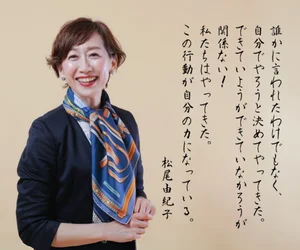 誰かに言われたわけでもなく、
自分でやろうと決めてやってきた。
できていようができていなかろうが
関係ない！
私たちはやってきた。
この行動が自分の力になっている。
松尾由紀子